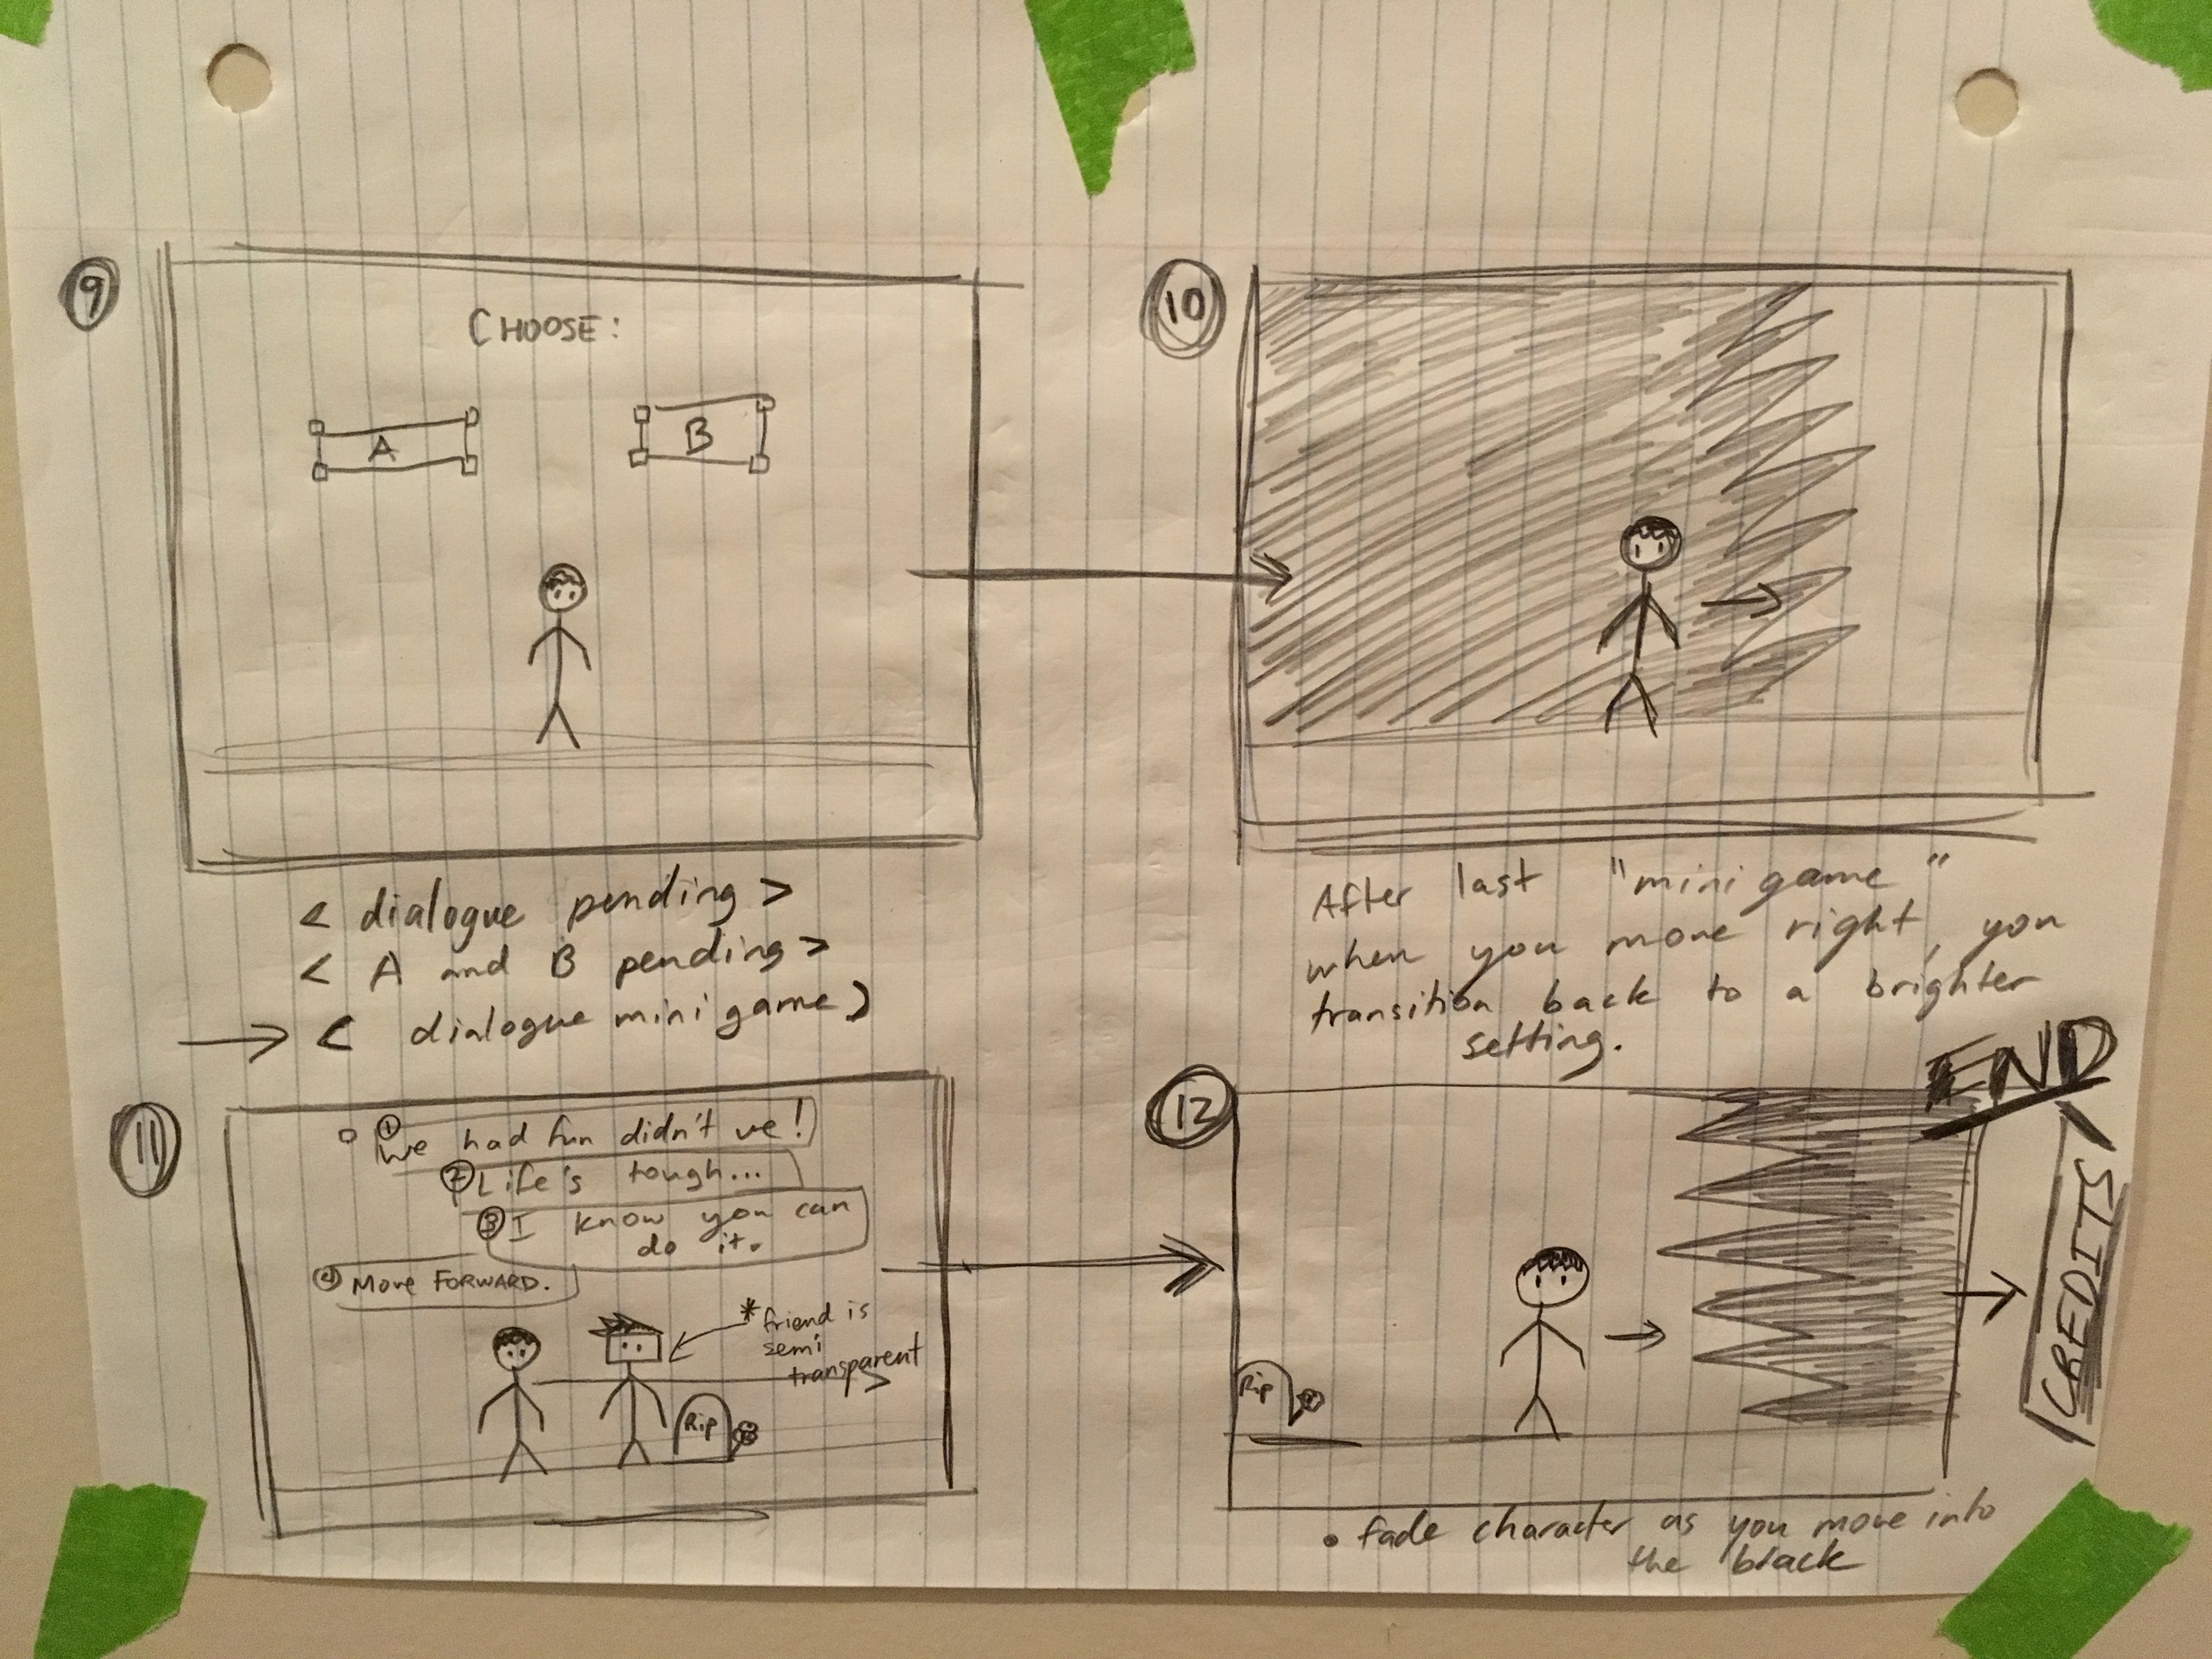 9
CHOOSE:
A
B
< dialogue pending >
< A and B pending >
→ < dialogue mini game >
10
After last "mini game"
when you move right, you
transition back to a brighter
setting.
11
① We had fun didn't we!
② Life's tough...
③ I know you can
do it.
④ Move FORWARD.
* friend is
semi
transparent
Rip
12
Rip
END
CREDITS
• fade character as you move into
the black